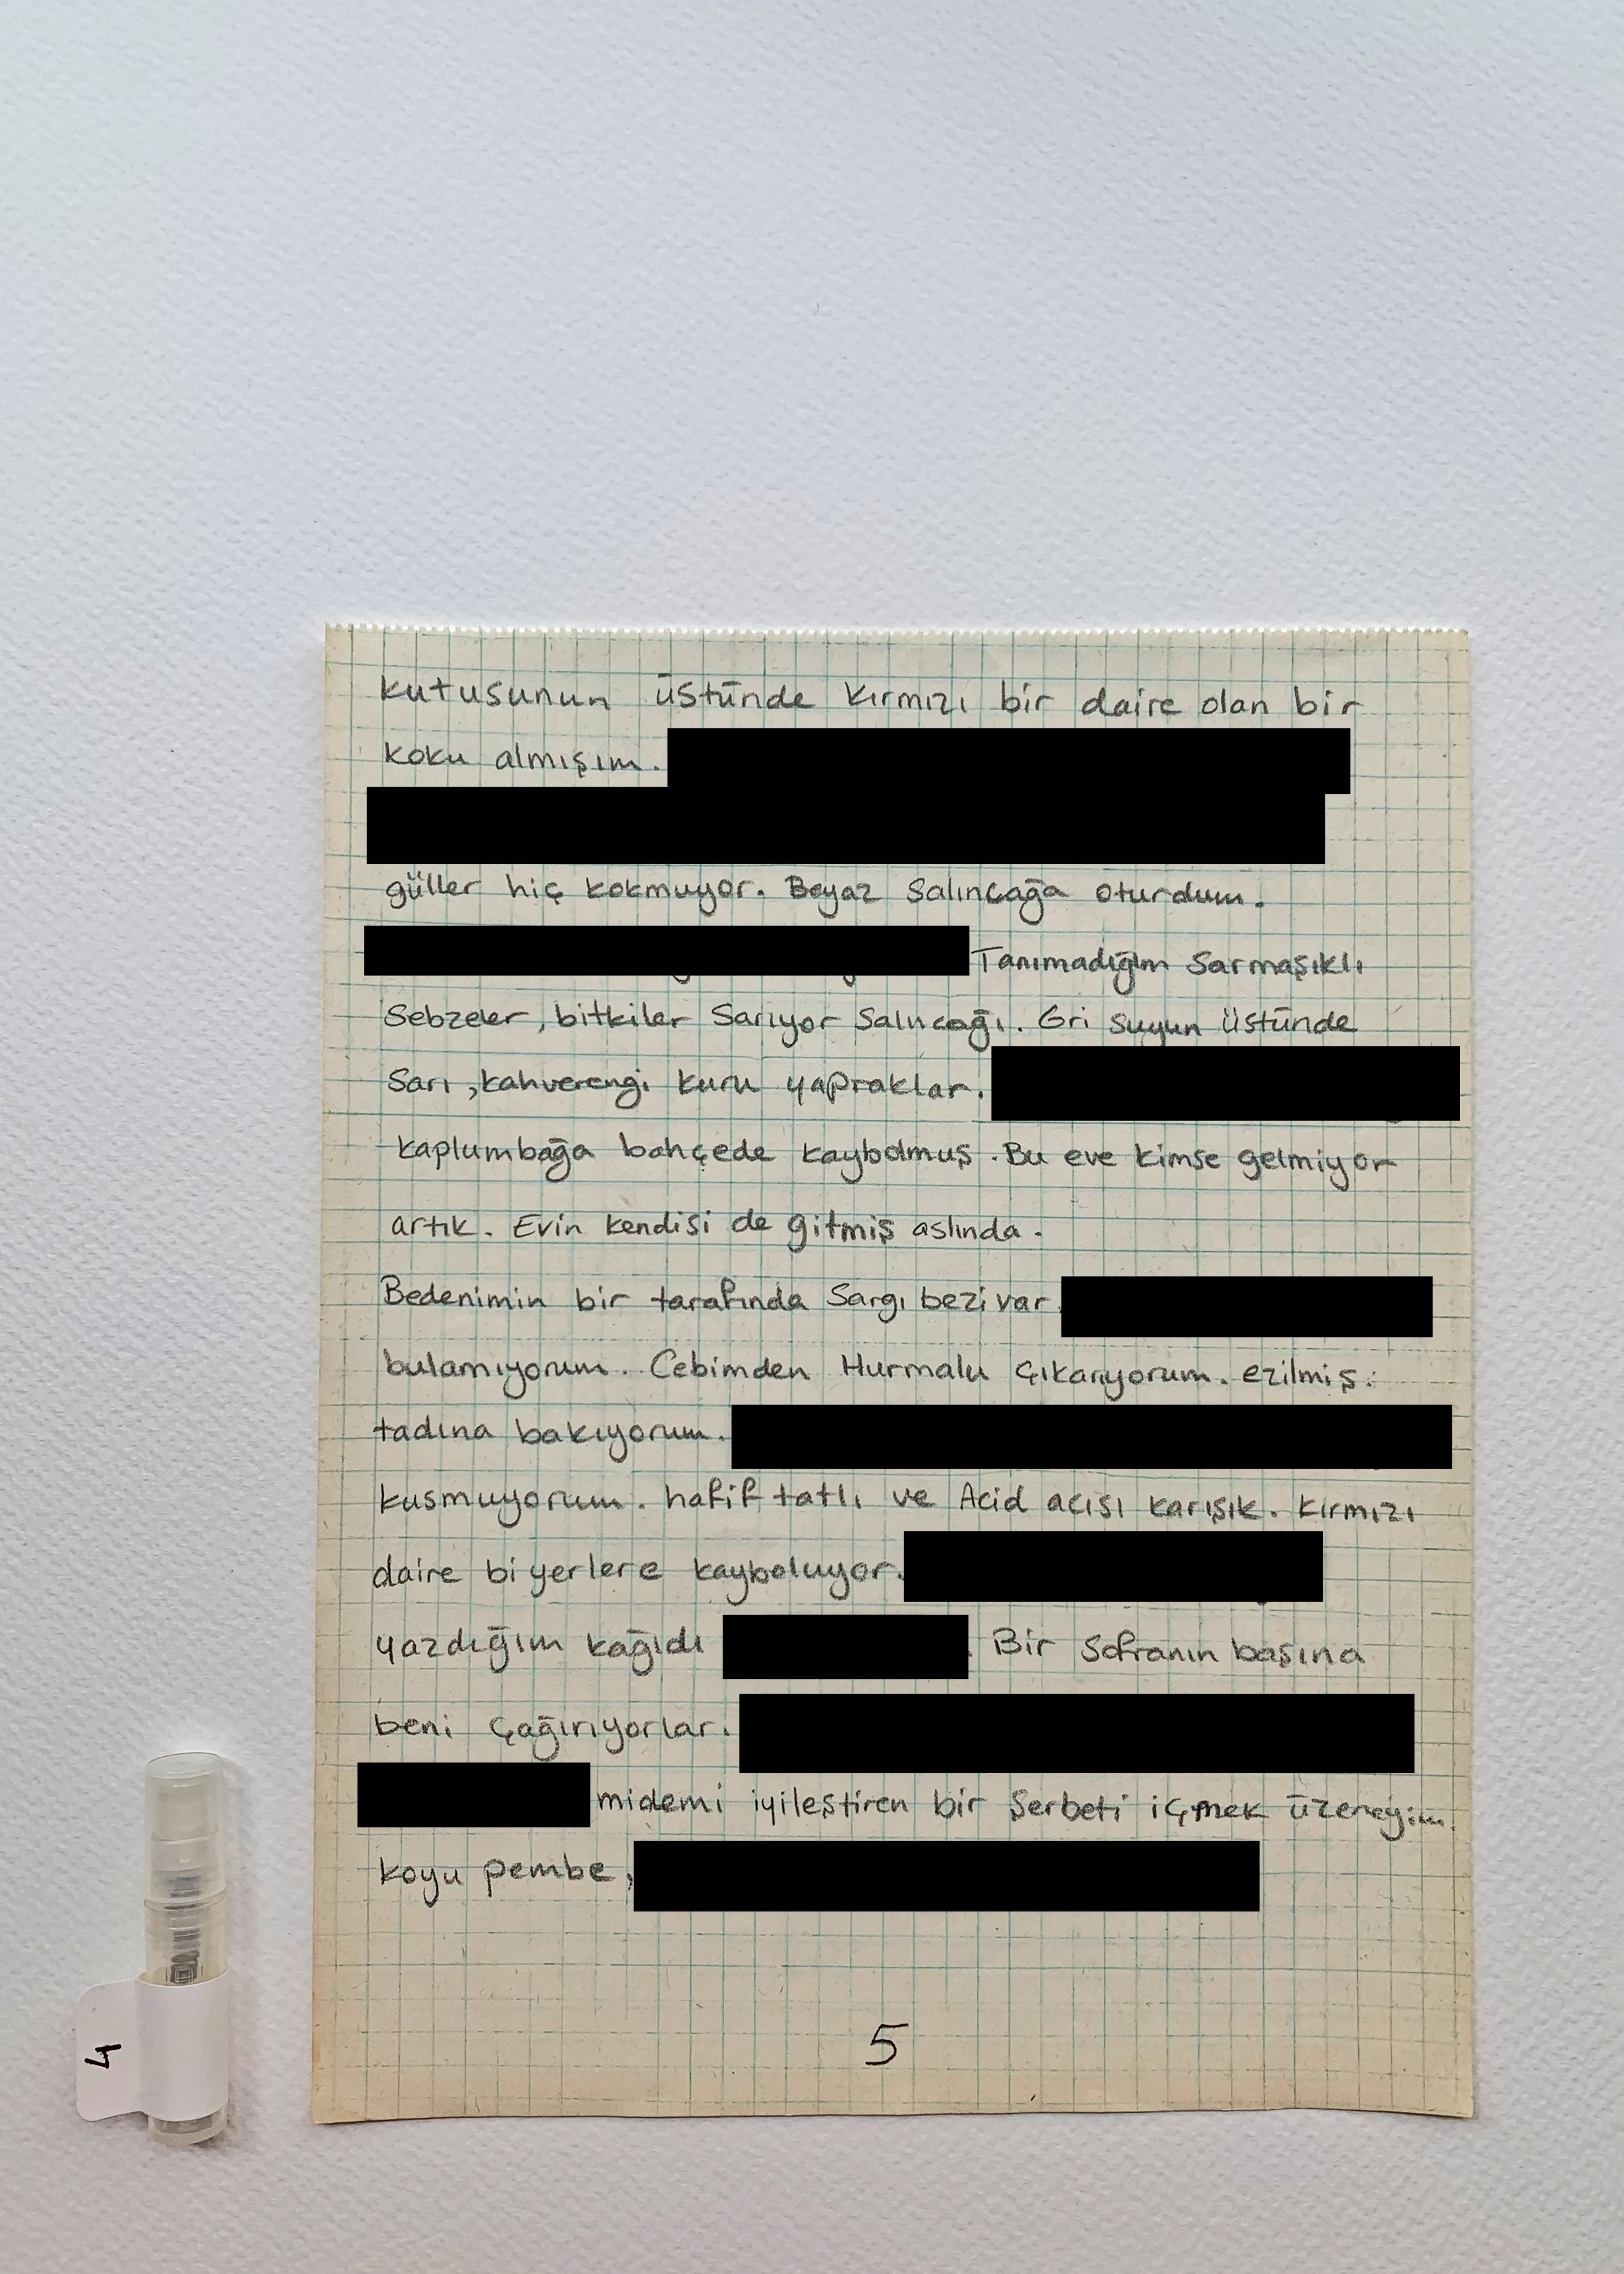 kutusunun üstünde kırmızı bir daire olan bir
koku almışım.
güller hiç kokmuyor. Beyaz Salıncağa oturdum.
Tanımadığım Sarmaşıklı
Sebzeler, bitkiler Sarıyor Salıncağı. Gri Suyun üstünde
Sarı, kahverengi kuru yapraklar.
kaplumbağa bahçede kaybolmuş. Bu eve kimse gelmiyor
artık. Evin kendisi de gitmiş aslında.
Bedenimin bir tarafında Sargı bezi var
bulamıyorum. Cebimden Hurmalu Çıkarıyorum. ezilmiş.
tadına bakıyorum.
kusmuyorum. hafif tatlı ve Acid acısı karışık. kırmızı
daire bi yerlere kayboluyor.
yazdığım kağıdı . Bir Sofranın başına
beni çağırıyorlar.
midemi iyileştiren bir Şerbeti içmek üzereyim.
koyu pembe,
5
4